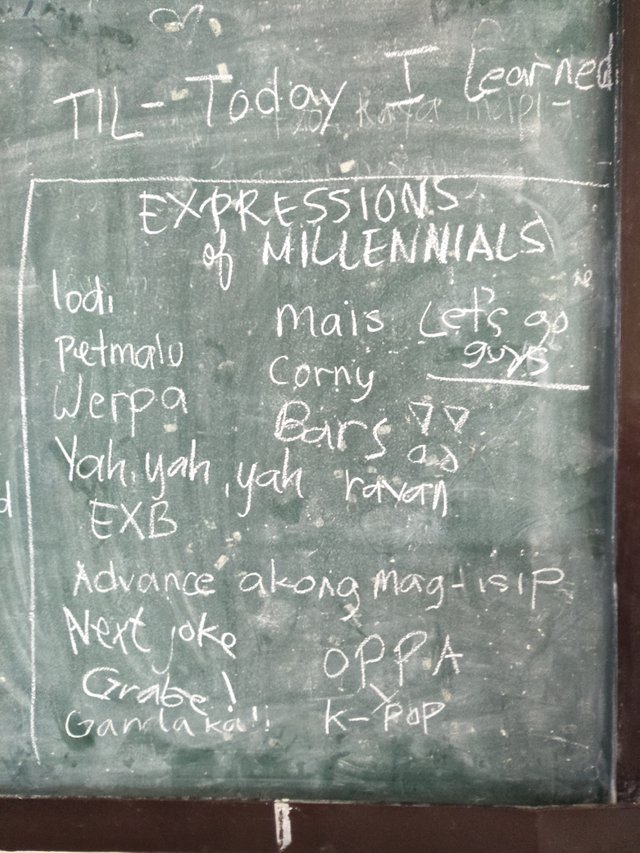 TIL - Today I Learned
EXPRESSIONS
of MILLENNIALS
lodi
Petmalu
Werpa
Yah, yah, yah
EXB
Mais
Corny
Bars
ravan
Let's go
guys
Advance akong mag-isip
Next joke
Grabe!
Ganda ka!!
OPPA
K-POP